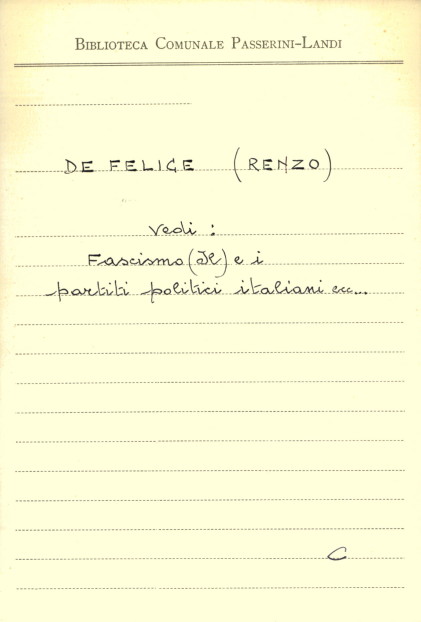 BIBLIOTECA COMUNALE PASSERINI-LANDI
DE FELICE (RENZO)
Vedi :
Fascismo (Il) e i
partiti politici italiani ecc...
C